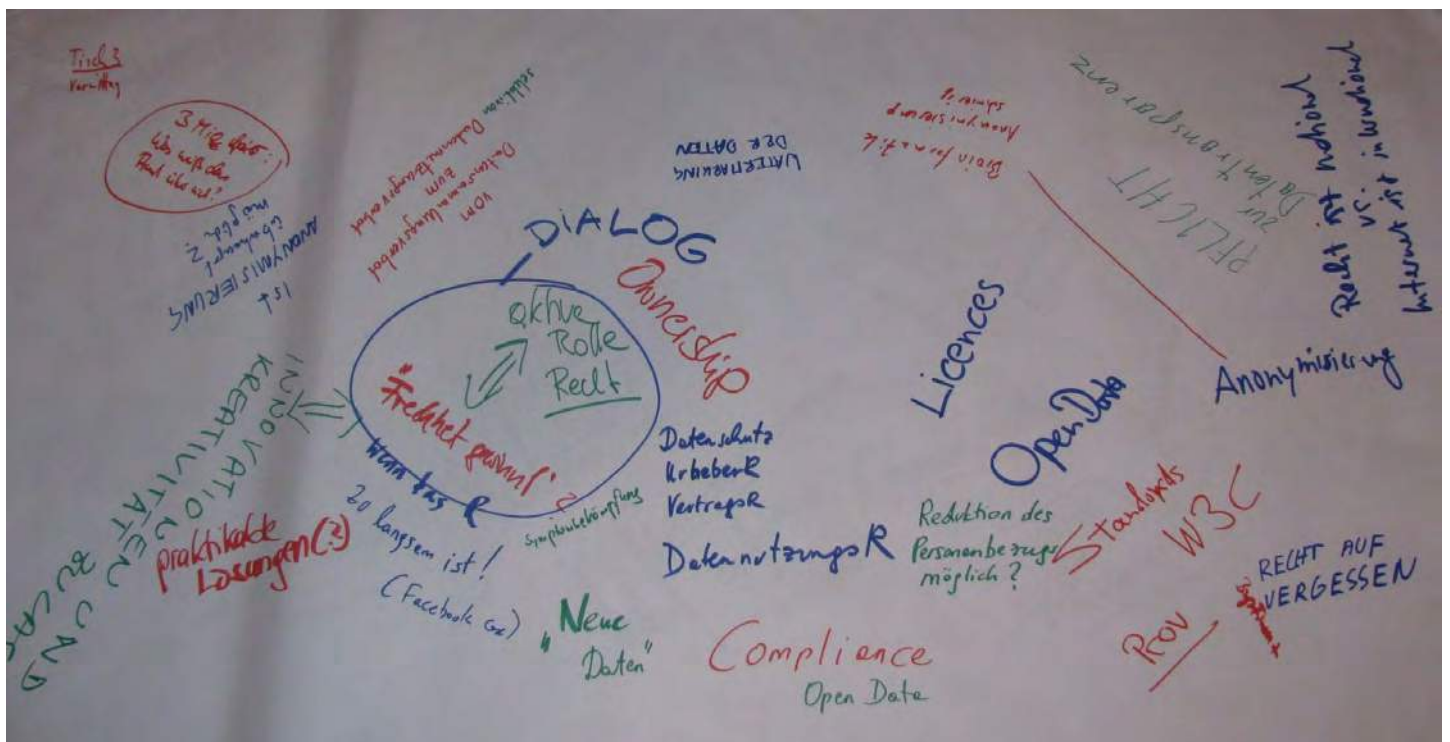 Tisch 3
Vormittag
3 Mio
Was weiß der
über uns?
Ist
ANONYMISIERUNG
überhaupt
möglich?
VOM
Datensammlungsverbot
ZUM
selektiven Datennutzungsverbot
WATERMARKING
DER DATEN
Bioinformatik
Anonymisierung
schwierig
PFLICHT
zur
Datentransparenz
Recht ist national
vs.
Internet ist international
DIALOG
Ownership
aktive
Rolle
Recht
"Frechheit gewinnt"
Wenn das R
zo langsam ist!
(Facebook
Symptombekämpfung
INNOVATIONEN UND
KREATIVITÄT
praktikable
Lösungen(?)
Datenschutz
UrheberR
VertragsR
DatennutzungsR
Licences
OpenData
Anonymisierung
Reduktion des
Personenbezugs
möglich?
Standards
W3C
Prov
RECHT AUF
VERGESSEN
"Neue
Daten"
Compliance
Open Data